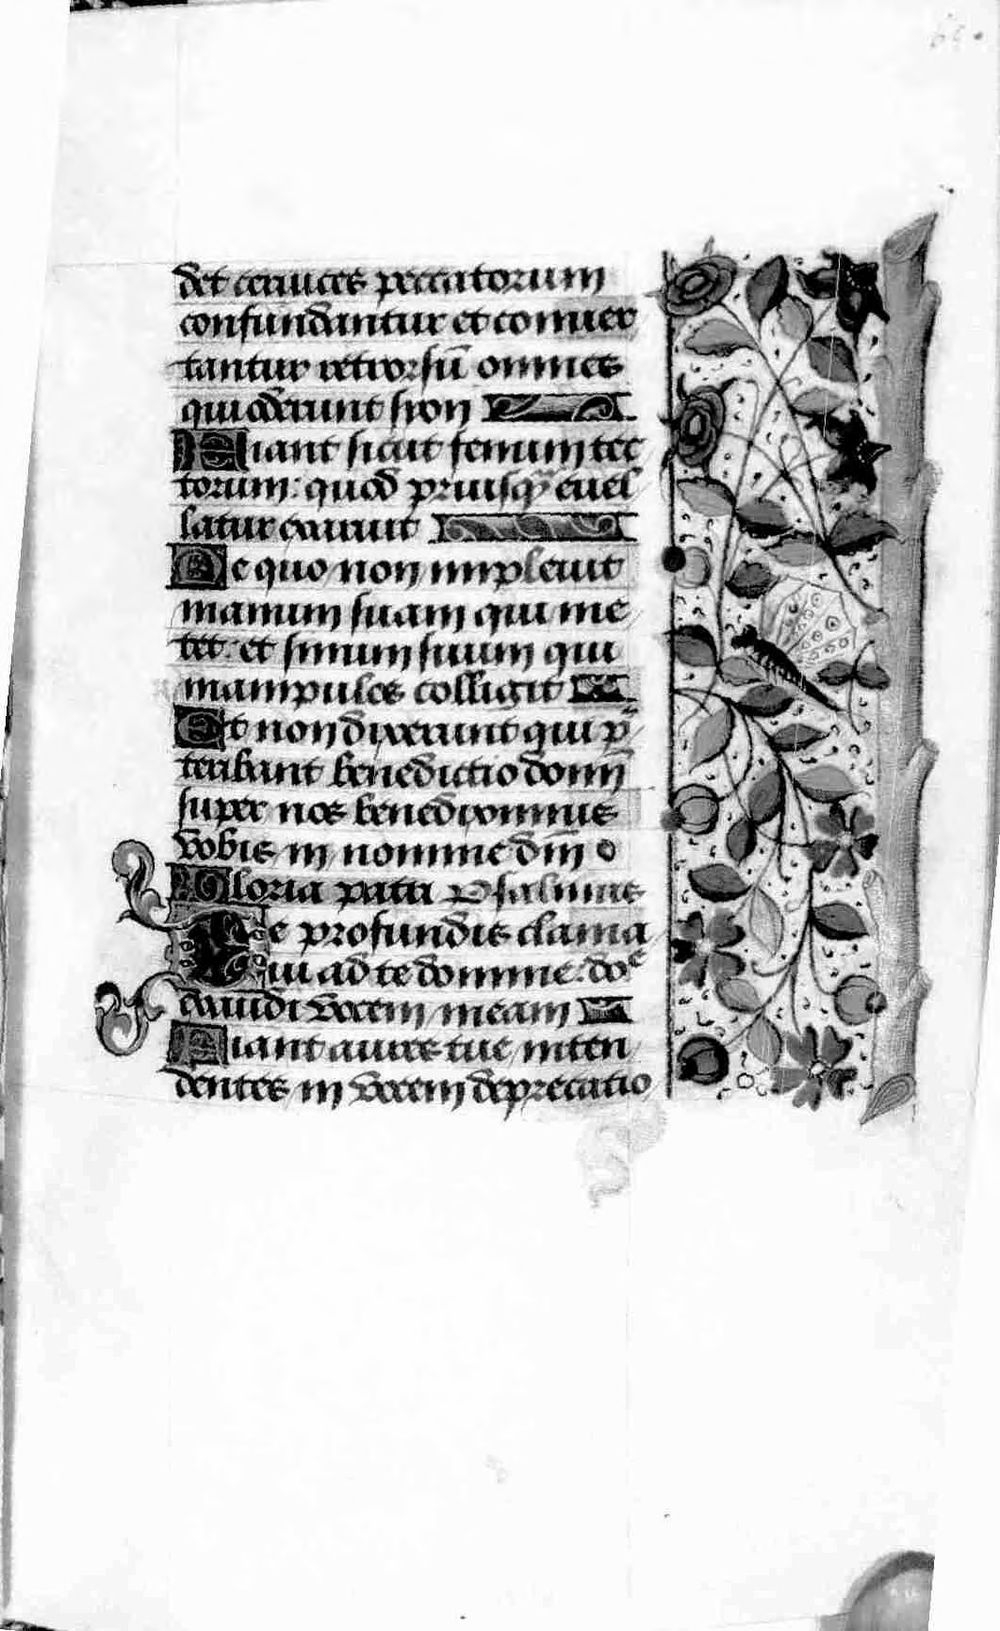 det ceruices peccatorum
confundantur et conuer
tantur retrorsū omnes
qui oderunt sion
Fiant sicut fenum tec
torum: quod priusq̄ euel
latur exaruit
De quo non impleuit
manum suam qui me
tet: et sinum suum qui
manipulos colligit
Et non dixerunt qui p̄
teribant benedictio domī
super nos benediximus
vobis in nomine dīm
Gloria patri Psalmus
De profundis clama
ui ad te domine: do͛e
exaudi vocem meam
Fiant aures tue inten
dentes in vocem deprecatio